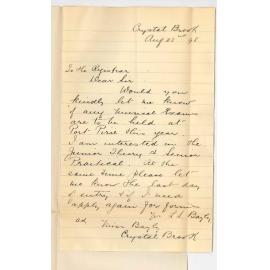 Crystal Brook
Aug 22nd 98
To the Registrar
Dear Sir
Would you
kindly let me know
if any Musical Exams
are to be held at
Port Pirie this year.
I am interested in the
Junior Theory & Senior
Practical. At the
same time please let
me know the last day
of entry & if I need
apply again for forms
Yr L L Bagly
ad Miss Bagly
Crystal Brook